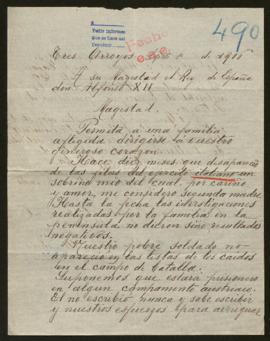 490
Pedir informes
Fecha
Tres Arroyos
A su Magestad el Rey de España
don Alfonso XIII
Magestad.
Permita á una familia
afligida dirigirse á vuestro
generoso corazon.
Hace diez meses que desaparecio
de las filas del ejercito italiano un
sobrino mio del cual, por cariño
y amor, me considero segunda madre.
Hasta la fecha las investigaciones
realizadas por la familia en la
peninsula no dieron sino resultados
negativos.
Nuestro pobre soldado no
aparecio en las listas de los caidos
en el campo de batalla.
Suponemos que estará prisionero
en algun campamento austriaco.
El no escribio nunca y sabe escribir
y nuestros esfuerzos para averiguar